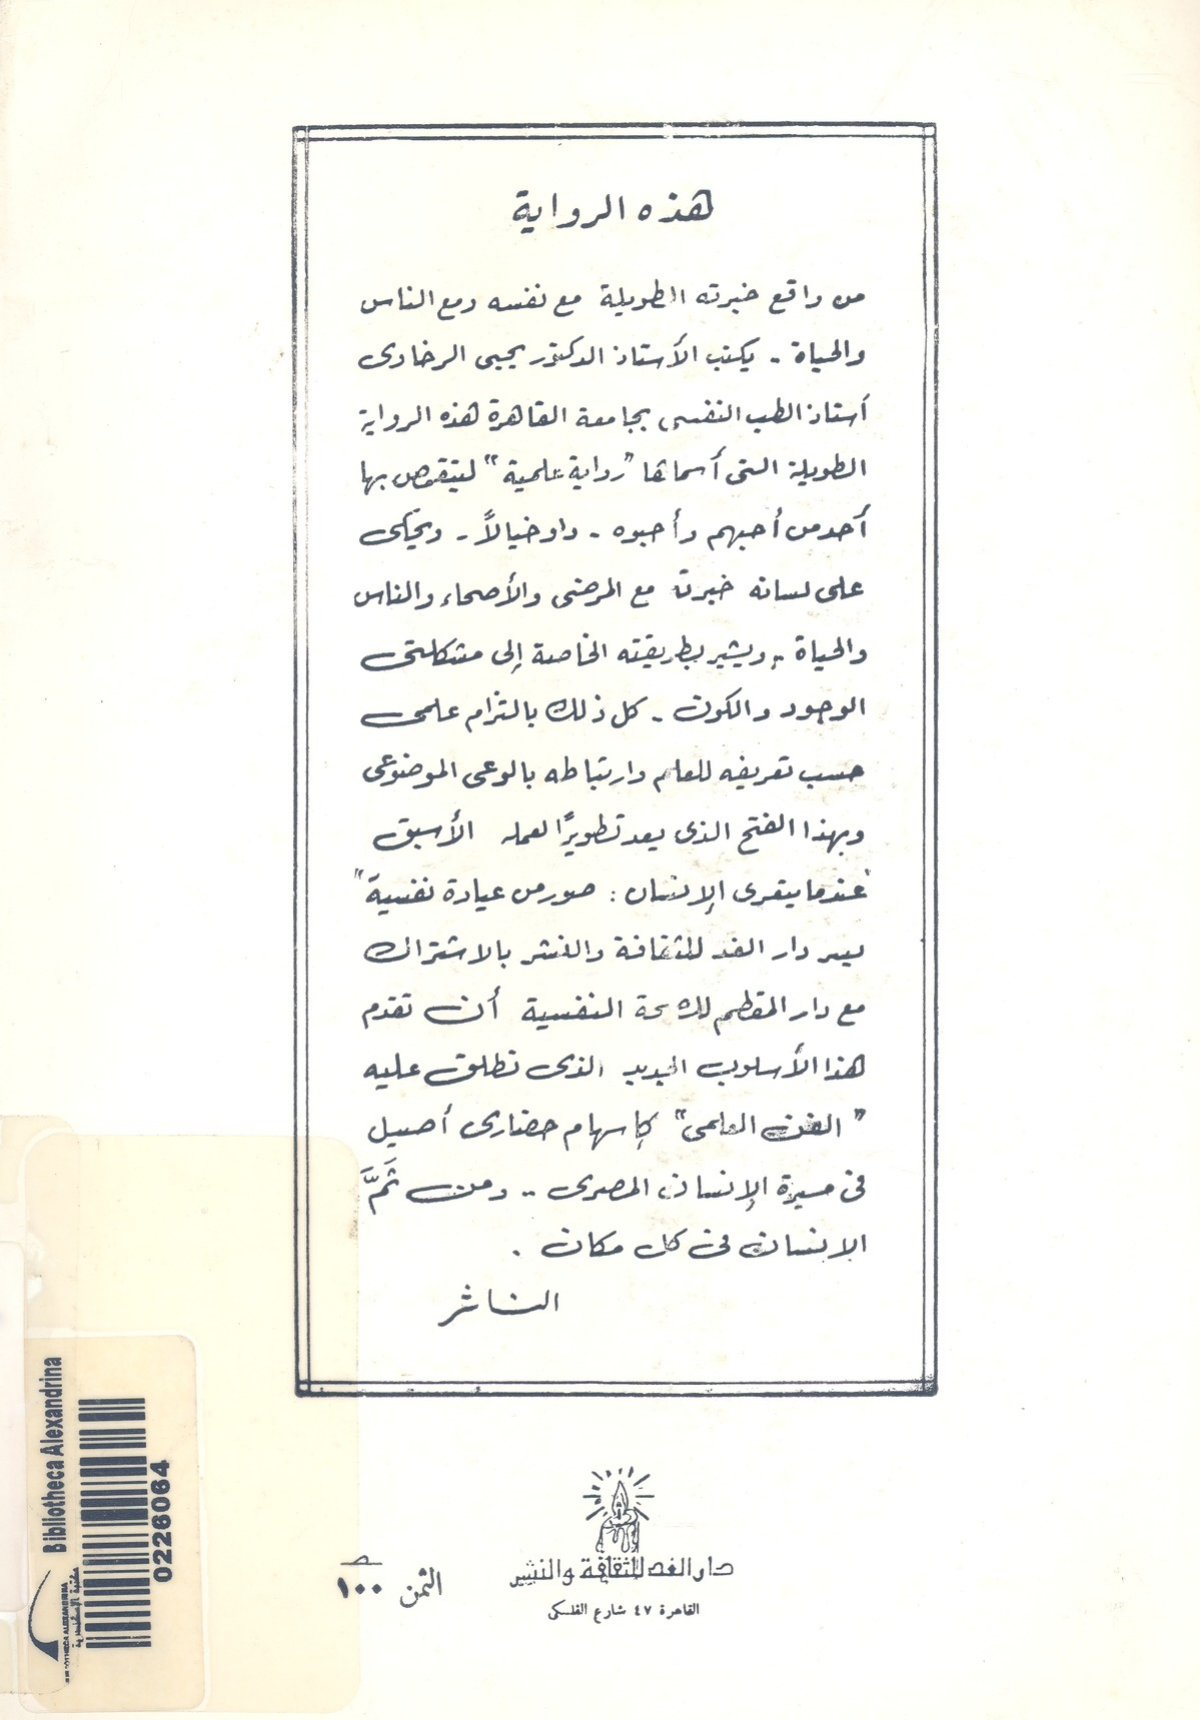 هذه الرواية
من واقع خبرته الطويلة مع نفسه ومع الناس
والحياة .. يكتب الأستاذ الدكتور يحيى الرخاوى
أستاذ الطب النفسى بجامعة القاهرة هذه الرواية
الطويلة التى أسماها "رواية علمية" ليتقمص بها
أحد من أحبهم وأحبوه .. ولو خيالاً .. ويحكى
على لسانه خبرته مع المرضى والأصحاء والناس
والحياة .. ويشير بطريقته الخاصة إلى مشكلتى
الوجود والكون .. كل ذلك بالتزام علمى
حسب تعريفه للعلم وارتباطه بالوعى الموضوعى
وبهذا الفتح الذى يعد تطويرًا لعمله الأسبق
"عندما يتعرى الإنسان : صور من عيادة نفسية"
يسر دار الغد للثقافة والنشر بالاشتراك
مع دار المقطم للصحة النفسية أن تقدم
هذا الأسلوب الجديد الذى تطلق عليه
"الفن العلمى" كإسهام حضارى أصيل
فى مسيرة الإنسان المصرى .. ومن ثَمَّ
الإنسان فى كل مكان .
الناشر
دار الغد للثقافة والنشر
القاهرة ٤٧ شارع الفلكى
الثمن ١٠٠
Bibliotheca Alexandrina
0226064
مكتبة الإسكندرية